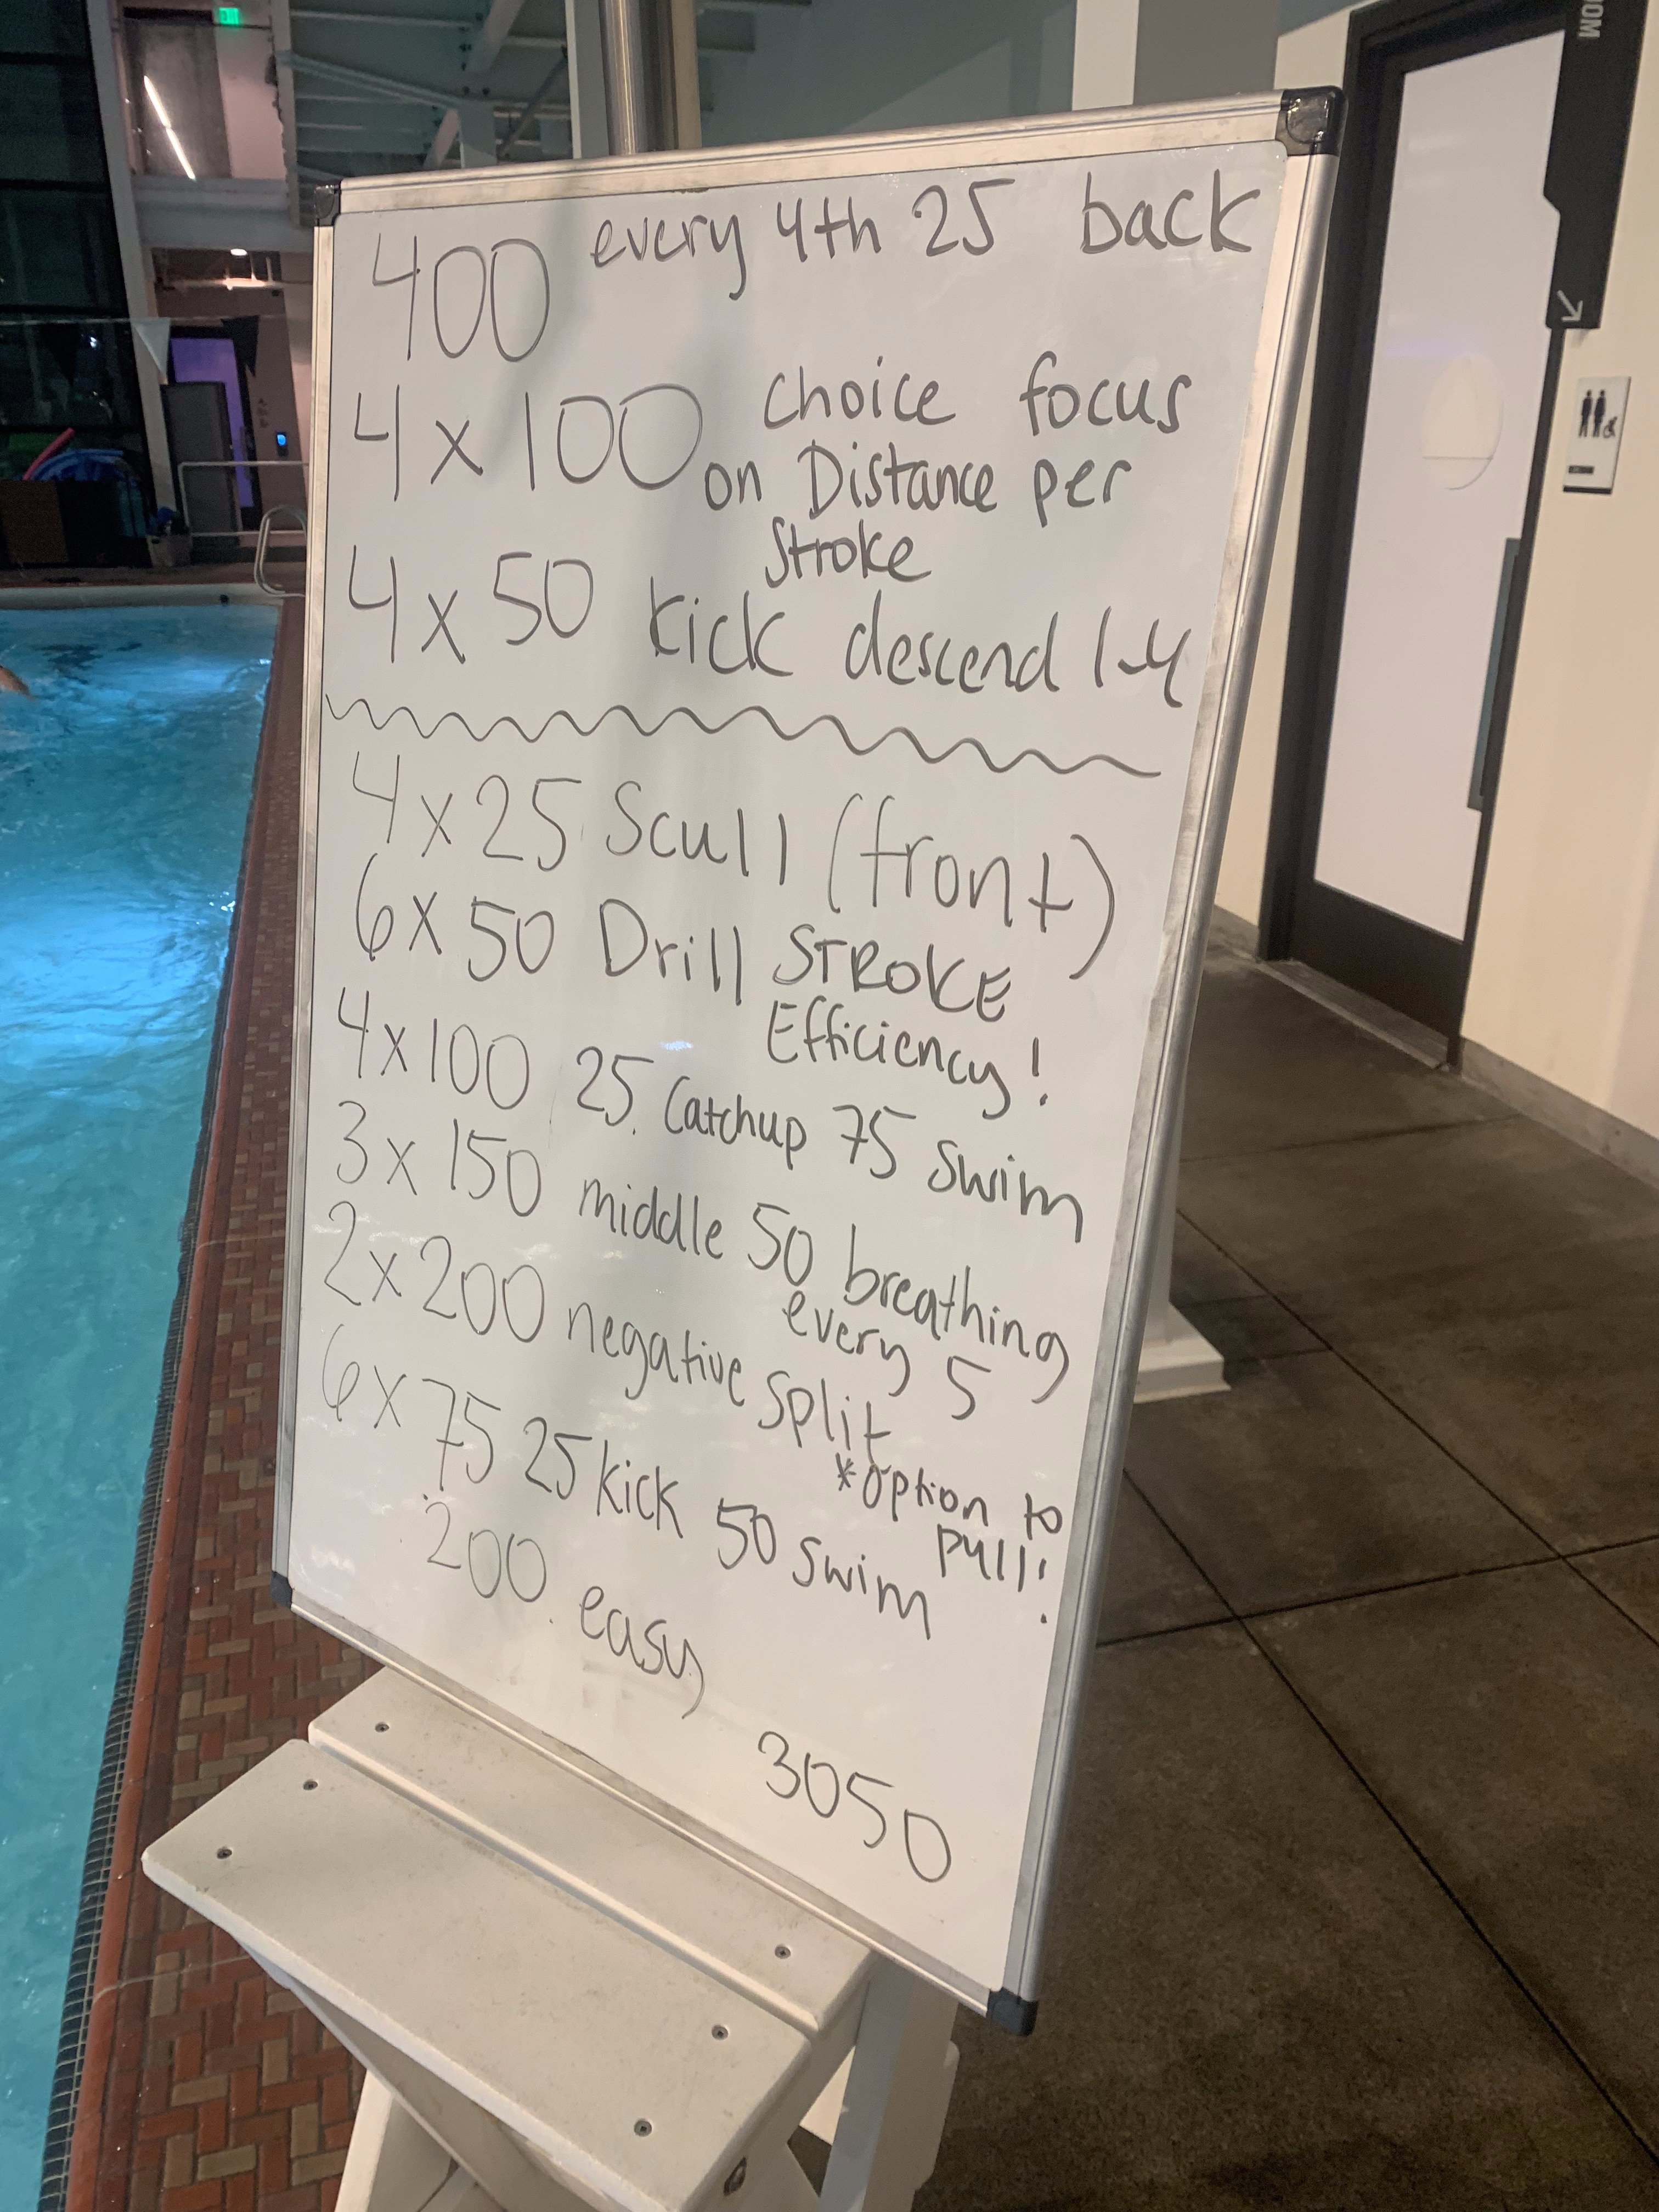 400 every 4th 25 back
4 x 100 choice focus
on Distance per
Stroke
4 x 50 kick descend 1-4
4 x 25 Scull (front)
6 x 50 Drill STROKE
Efficiency!
4 x 100 25 Catchup 75 Swim
3 x 150 middle 50 breathing
every 5
2 x 200 negative split
*option to
pull!
6 x 75 25 kick 50 swim
200 easy
3050